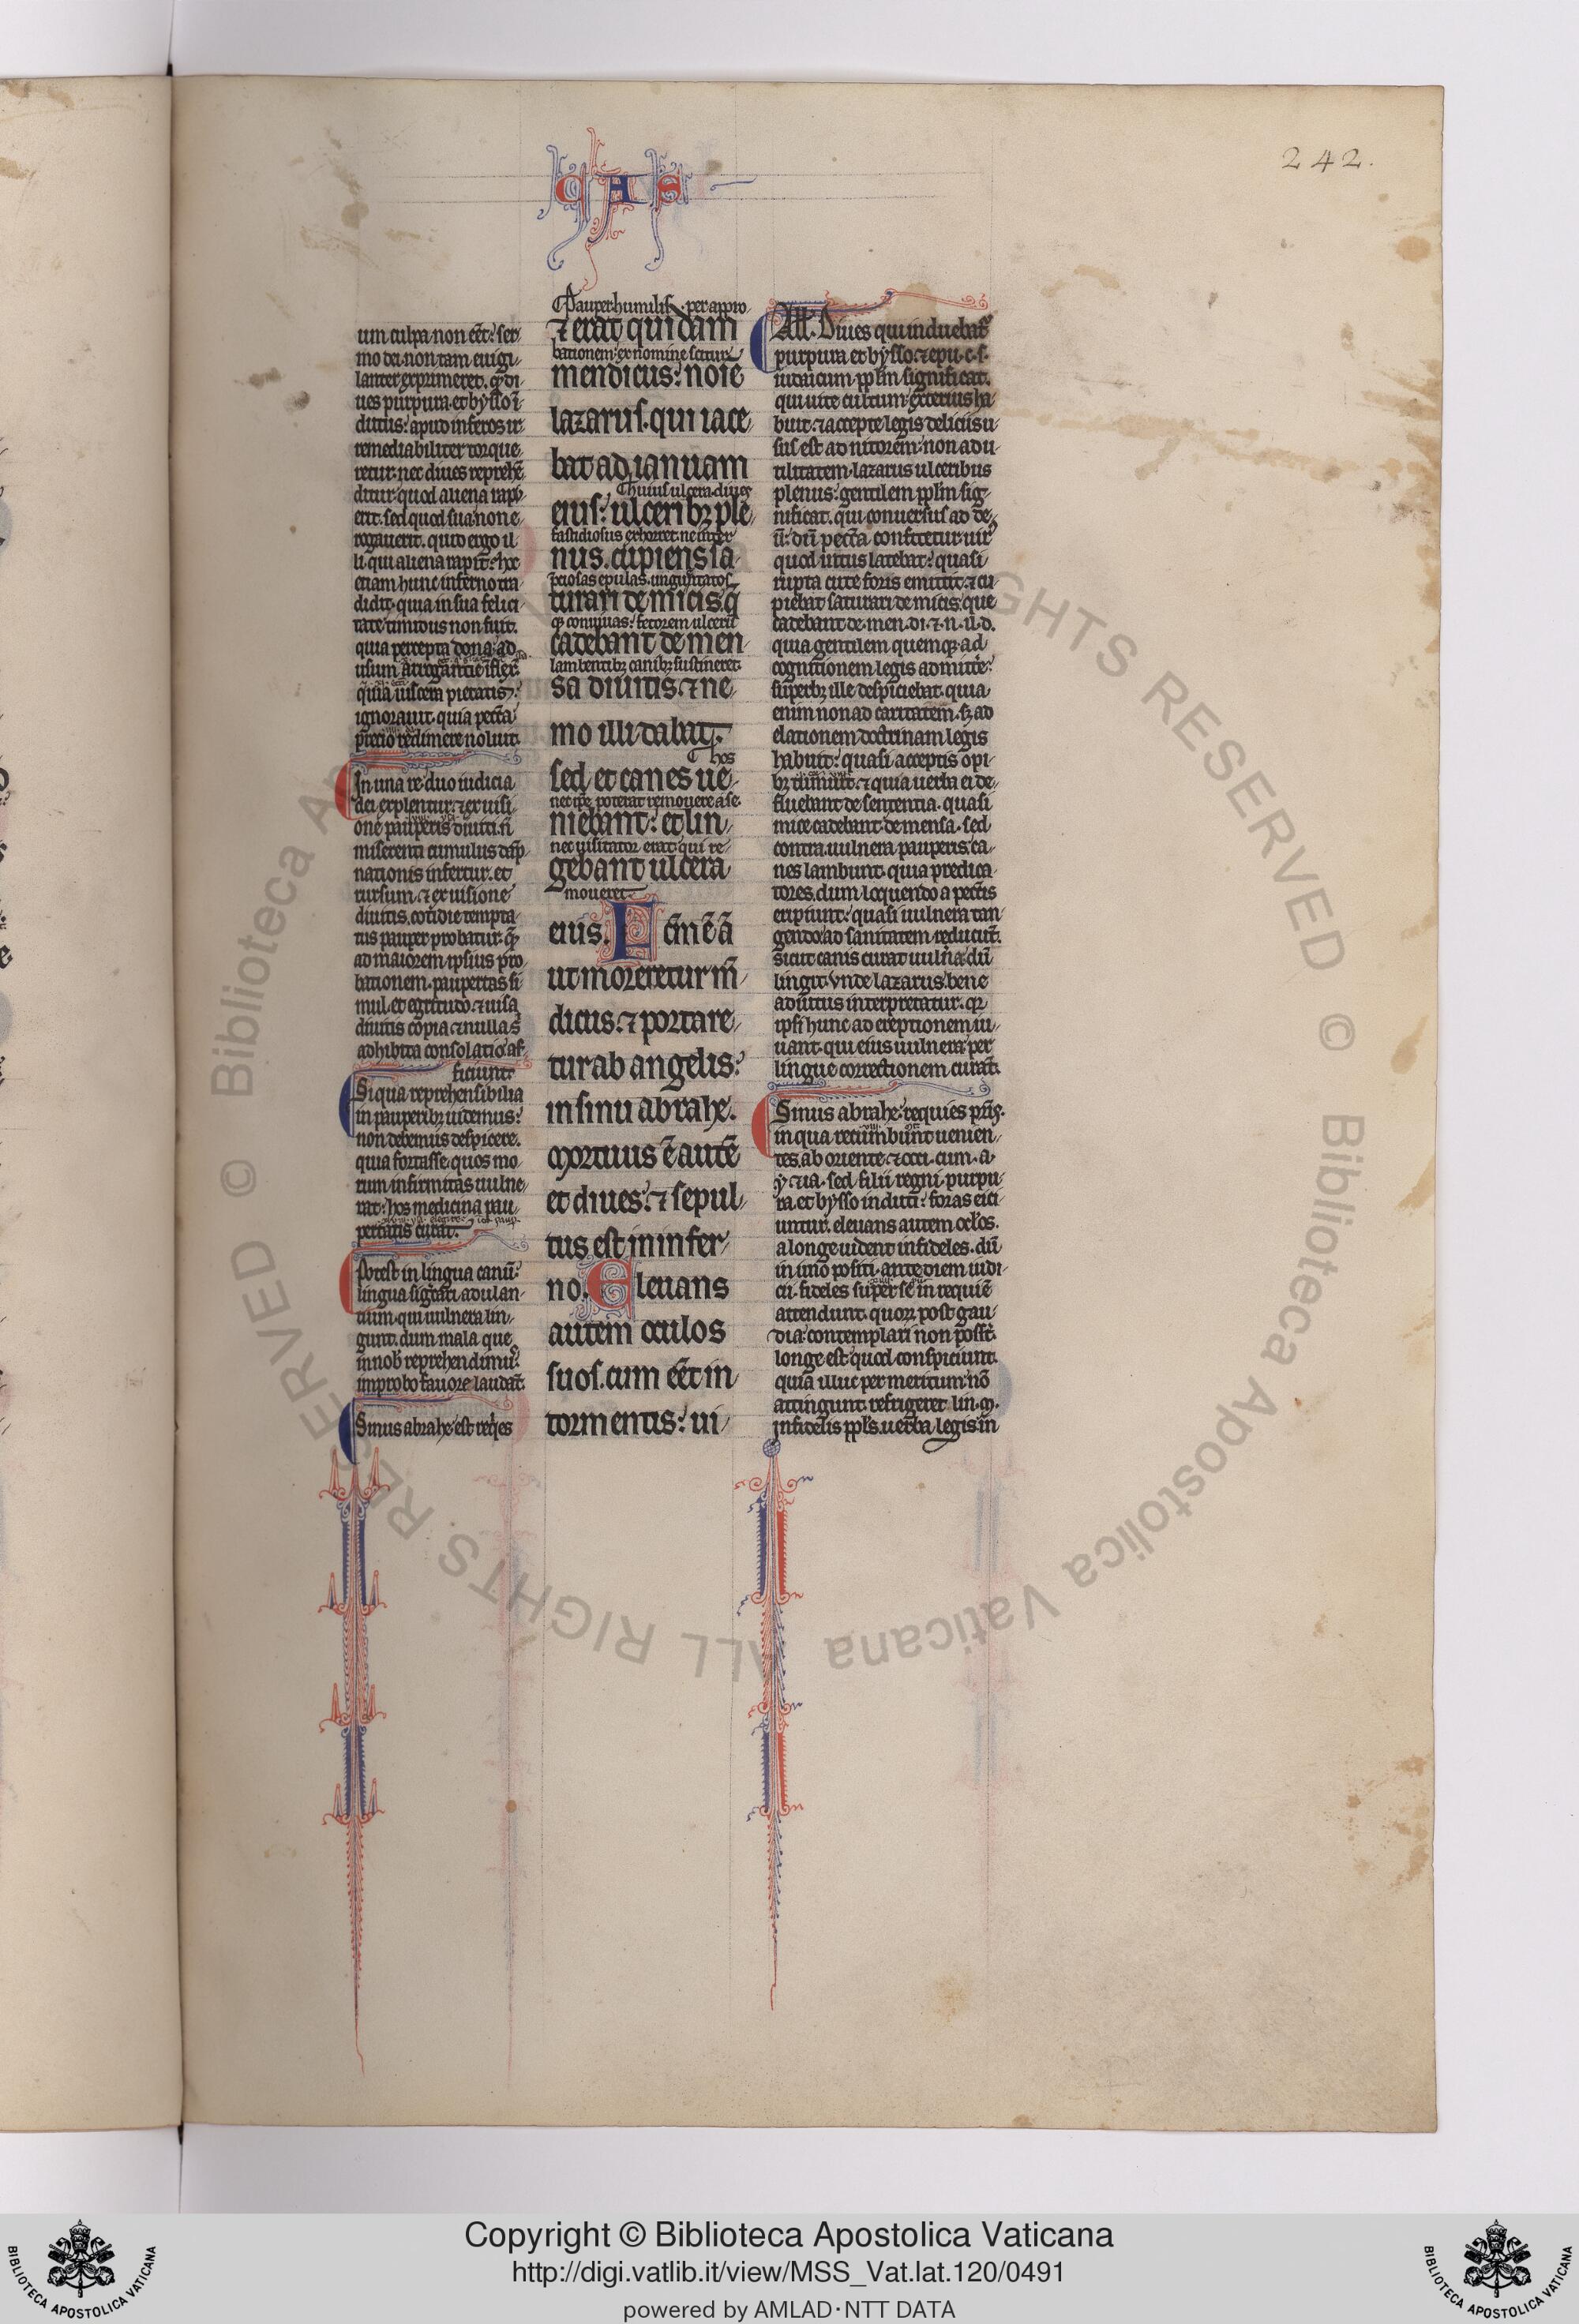 C A S
242.
um culpa non eēt: ser
mo dei non tam euigi
lanter exprimeret. qđ di
ues purpura et bysso ī
dutus: apud inferos ir
remediabiliter torque
retur. nec diues reprehē
ditur quod aliena rapu
erit. sed quod sua non e
rogauerit. quid ergo il
li qui aliena rapit: hec
etiam hunc inferno tra
didit. quia in sua felici
tate timidus non fuit.
quia percepta dona ad
usum arrogantie
quia uiscera pietatis
ignorauit. quia peccata
precio redimere noluit.
In una re duo iudicia
dei explentur. ⁊ ex uisi
one pauperis diuiti ñ
miserenti cumulus dāp
nationis infertur. et
rursum. ⁊ ex uisione
diuitis. cotidie tempta
tus pauper probatur.
ad maiorem ipsius pro
bationem. paupertas si
mul. et egritudo. ⁊ uisa
diuitis copia ⁊ nulla s
adhibita consolatio af
ficiunt
Siqua reprehensibilia
in pauperibꝫ uidemus:
non debemus despicere.
quia fortasse quos mo
rum infirmitas uulne
rat: hos medicina pau
pertatis curat.
Potest in lingua canū:
lingua adulan
tium. qui uulnera lin
gunt. dum mala que
in nob reprehendimus:
improbo fauore laudāt.
Sinus abrahe est reqͥes
Pauper humilis. per appro
⁊ erat quidam
bationem ex nomine scitur
mendicus: noīe
lazarus. qui iace
bat ad ianuam
huius ulcera diues
eius: ulceribꝫ ple
fastidiosus exhorret. ne inter
nus. cupiens sa
pciosas epulas. unguentatos
turari de micis. q̄
qꝫ conuiuas: fetorem ulcerū
cadebant de men
lambentibꝫ canibꝫ sustineret
sa diuitis. ⁊ ne
mo illi dabat.
hos
sed et canes ue
nec ipse poterat remouere a se
niebant: et lin
nec uisitator erat qui re
gebant ulcera
moueret
eius. F
ut moreretur m̄
dicus. ⁊ portare
tur ab angelis:
in sinu abrahe.
Mortuus ē autē
et diues: ⁊ sepul
tus est in infer
no. Eleuans
autem oculos
suos. cum eēt in
tormentis: ui
All. Diues qui induebat
purpura et bysso. ⁊ epu. c. s.
iudaicum pplm significat.
qui uite cultum exterius ha
buit. ⁊ accepte legis deliciis u
sus est ad nitorem: non ad u
tilitatem. lazarus ulceribus
plenus: gentilem pplm sig
nificat. qui conuersus ad de
ū: dū peccta confitetur. uir
quod intus latebat: quasi
rupta cute foris emittit. ⁊ cu
piebat saturari de micis. que
cadebant de men. di. ⁊ n. il. d.
quia gentilem quemqꝫ ad
cognitionem legis admittē:
superbꝫ ille despiciebat. quia
enim non ad caritatem. sꝫ ad
elationem doctrinam legis
habuit: quasi acceptis opi
bꝫ tumuit. ⁊ quia uerba ei de
fluebant de sententia. quasi
mice cadebant de mensa. sed
contra. uulnera pauperis. ca
nes lambunt. quia predica
tores. dum loquendo a peccatis
eripiunt: quasi uulnera tan
gendo ad sanitatem reducūt.
sicut canis curat uulnera dū
lingit. vnde lazarus. bene
adiutus interpretatur. qꝛ
ipsi hunc ad ereptionem iu
uant. qui eius uulnera per
lingue correctionem curāt.
Sinus abrahe: requies
in qua recumbunt uenien
tes. ab oriente ⁊ occi. cum. a.
y. ⁊ ia. sed filii regni. purpu
ra. et bysso induti: foras eici
untur. eleuans autem oclos.
a longe uident infideles. dū
in imo positi. ante diem iudi
cii. fideles super se in requiē
attendunt. quorꝫ post gau
dia contemplari non possūt.
longe est quod conspiciunt.
quia illuc per meritum nō
attingunt. refrigeret lin. m.
infidelis ppls. uerba legis in
© Biblioteca Apostolica Vaticana © Biblioteca Apostolica Vaticana ALL RIGHTS RESERVED
Copyright © Biblioteca Apostolica Vaticana
http://digi.vatlib.it/view/MSS_Vat.lat.120/0491
powered by AMLAD·NTT DATA
BIBLIOTECA APOSTOLICA VATICANA
BIBLIOTECA APOSTOLICA VATICANA